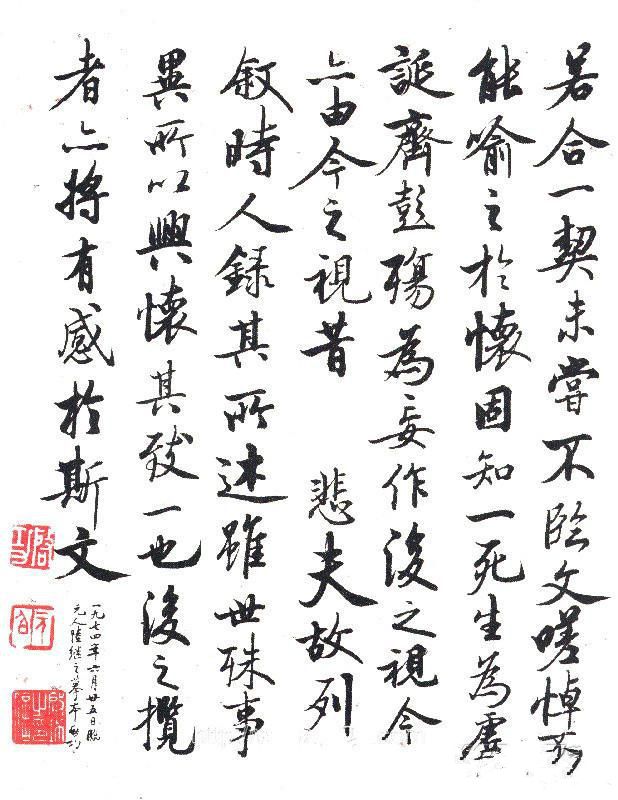 若合一契未嘗不臨文嗟悼不
能喻之於懷固知一死生為虛
誕齊彭殤為妄作後之視今
亦由今之視昔 悲夫故列
敘時人錄其所述雖世殊事
異所以興懷其致一也後之攬
者亦將有感於斯文
一九七四年六月廿五日臨
元人陸繼之摹本啟功